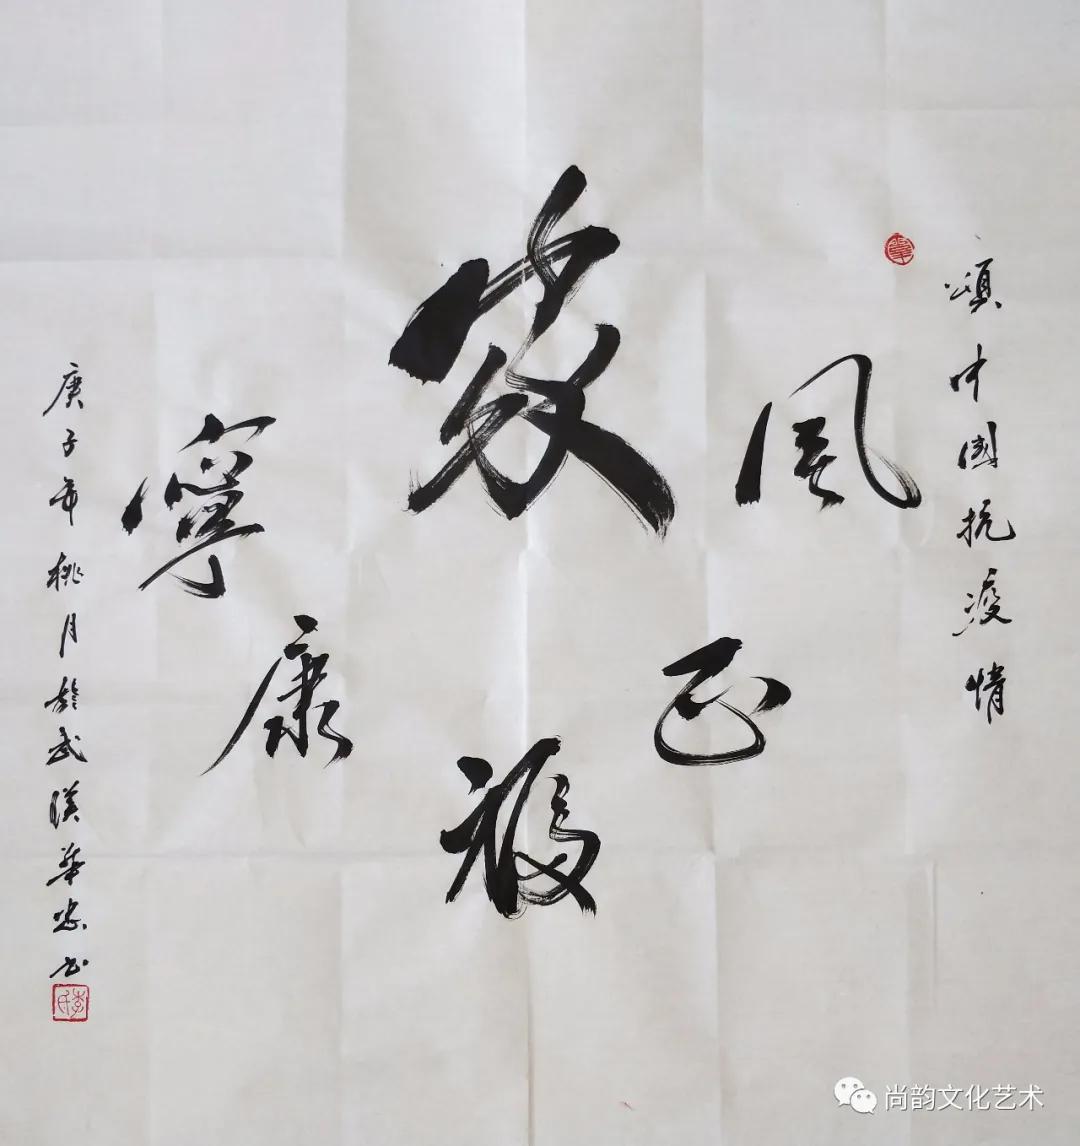 頌中國抗疫情
風正
福
康
寧
庚子年桃月於武漢華书
李氏
尚韵文化艺术